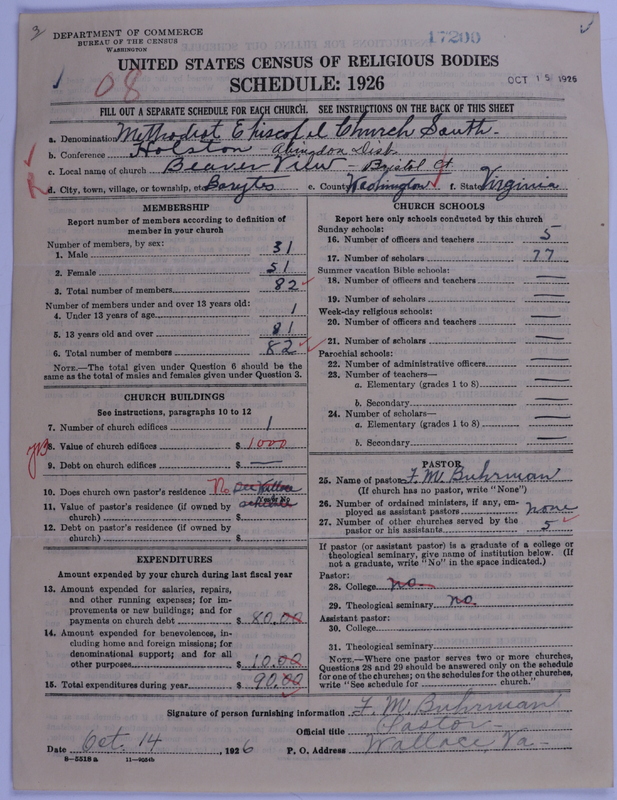 DEPARTMENT OF COMMERCE
BUREAU OF THE CENSUS
WASHINGTON
17200
UNITED STATES CENSUS OF RELIGIOUS BODIES
SCHEDULE: 1926
OCT 15 1926
08
FILL OUT A SEPARATE SCHEDULE FOR EACH CHURCH. SEE INSTRUCTIONS ON THE BACK OF THIS SHEET
a. Denomination Methodist Episcopal Church South-
b. Conference Holston - Abingdon Dist.
c. Local name of church Beaver View - Bristol Ct
d. City, town, village, or township, etc. Barytes e. County Washington f. State Virginia
MEMBERSHIP
Report number of members according to definition of
member in your church
Number of members, by sex:
1. Male 31
2. Female 51
3. Total number of members 82
Number of members under and over 13 years old:
4. Under 13 years of age 1
5. 13 years old and over 81
6. Total number of members 82
NOTE.—The total given under Question 6 should be the
same as the total of males and females given under Question 3.
CHURCH BUILDINGS
See instructions, paragraphs 10 to 12
7. Number of church edifices 1
8. Value of church edifices $ 1000
9. Debt on church edifices $ —
10. Does church own pastor's residence No See Wallace
11. Value of pastor's residence (if owned by schedule
church) $
12. Debt on pastor's residence (if owned by
church) $
EXPENDITURES
Amount expended by your church during last fiscal year
13. Amount expended for salaries, repairs,
and other running expenses; for im-
provements or new buildings; and for
payments on church debt $ 80.00
14. Amount expended for benevolences, in-
cluding home and foreign missions; for
denominational support; and for all
other purposes $ 10.00
15. Total expenditures during year $ 90.00
CHURCH SCHOOLS
Report here only schools conducted by this church
Sunday schools:
16. Number of officers and teachers 5
17. Number of scholars 77
Summer vacation Bible schools:
18. Number of officers and teachers —
19. Number of scholars —
Week-day religious schools:
20. Number of officers and teachers —
21. Number of scholars —
Parochial schools:
22. Number of administrative officers —
23. Number of teachers—
a. Elementary (grades 1 to 8) —
b. Secondary —
24. Number of scholars—
a. Elementary (grades 1 to 8) —
b. Secondary —
PASTOR
25. Name of pastor F. M. Buhrman
(If church has no pastor, write "None")
26. Number of ordained ministers, if any, em-
ployed as assistant pastors none
27. Number of other churches served by the
pastor or his assistants 5
If pastor (or assistant pastor) is a graduate of a college or
theological seminary, give name of institution below. (If
not a graduate, write "No" in the space indicated.)
Pastor:
28. College no
29. Theological seminary no
Assistant pastor:
30. College
31. Theological seminary
NOTE.—Where one pastor serves two or more churches,
Questions 28 and 29 should be answered only on the schedule
for one of the churches; on the schedules for the other churches,
write "See schedule for church."
Signature of person furnishing information F. M. Buhrman
Official title Pastor
Date Oct. 14, 1926 P. O. Address Wallace, Va-
8-5518a 11-9054b